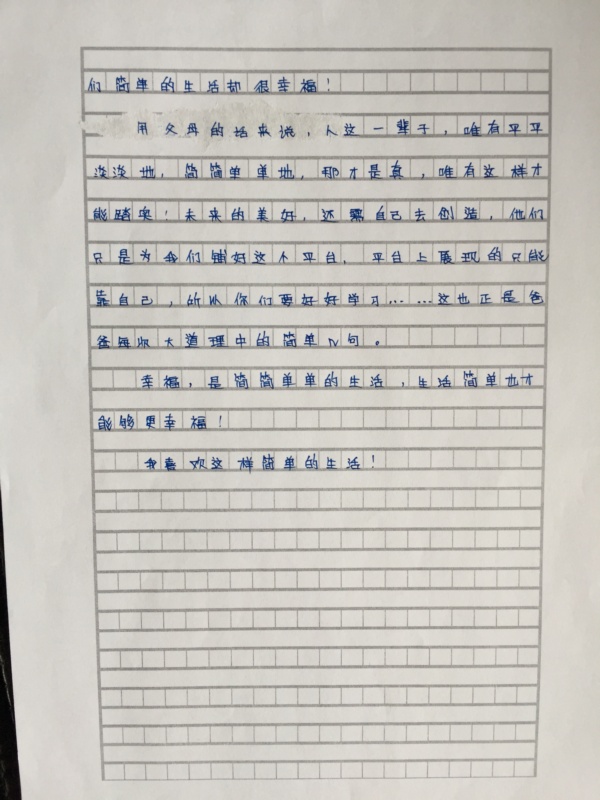 们简单的生活却很幸福！
用父母的话来说，人这一辈子，唯有平平
淡淡地，简简单单地，那才是真，唯有这样才
能踏实！未来的美好，还需自己去创造，他们
只是为我们铺好这个平台，平台上展现的只能
靠自己，所以你们要好好学习……这也正是爸
爸每次大道理中的简单几句。
幸福，是简简单单的生活，生活简单也才
能够更幸福！
我喜欢这样简单的生活！